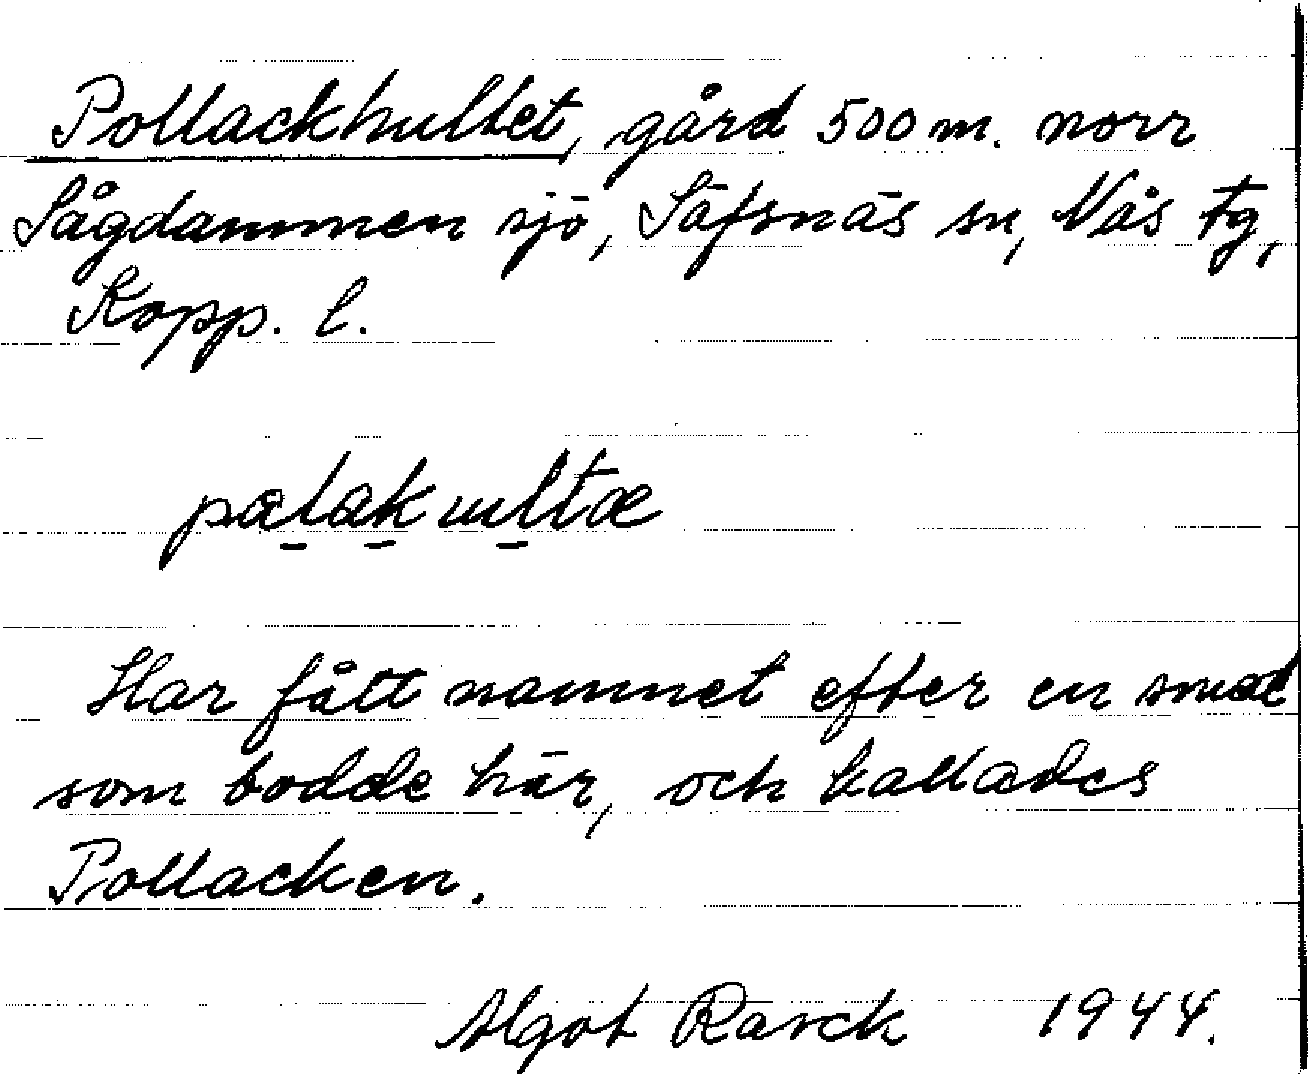 Pollackhultet, gård 500 m. norr
Sågdammen sjö, Säfsnäs sn, Nås tg,
Kopp. l.
Har fått namnet efter en smed
som bodde här, och kallades
Pollacken.
Algot Rarck 1944.